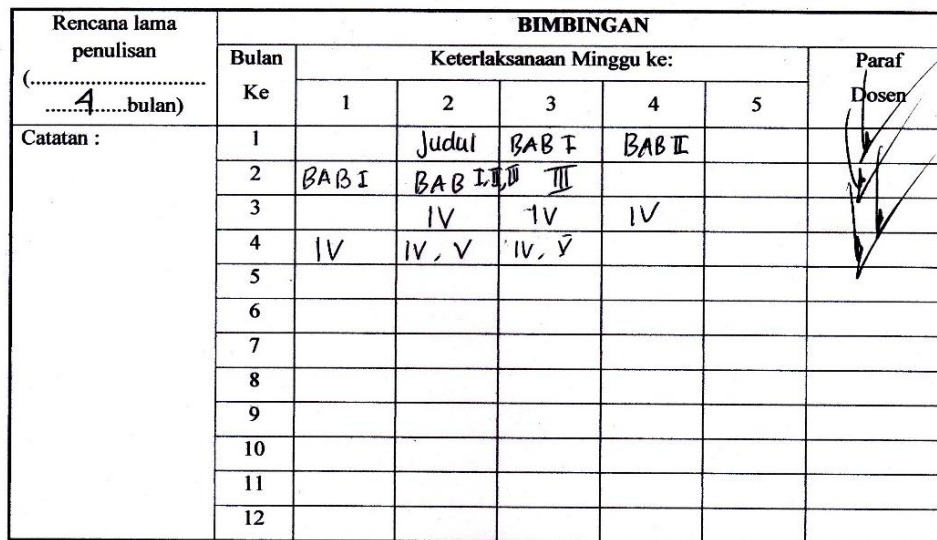 Rencana lama
penulisan
(..............................
.........4......bulan)
BIMBINGAN
Bulan
Ke
Keterlaksanaan Minggu ke:
Paraf
Dosen
1 2 3 4 5
Catatan :
1 Judul BAB I BAB II
2 BAB I BAB I,II,III III
3 IV IV IV
4 IV IV, V IV, V
5
6
7
8
9
10
11
12